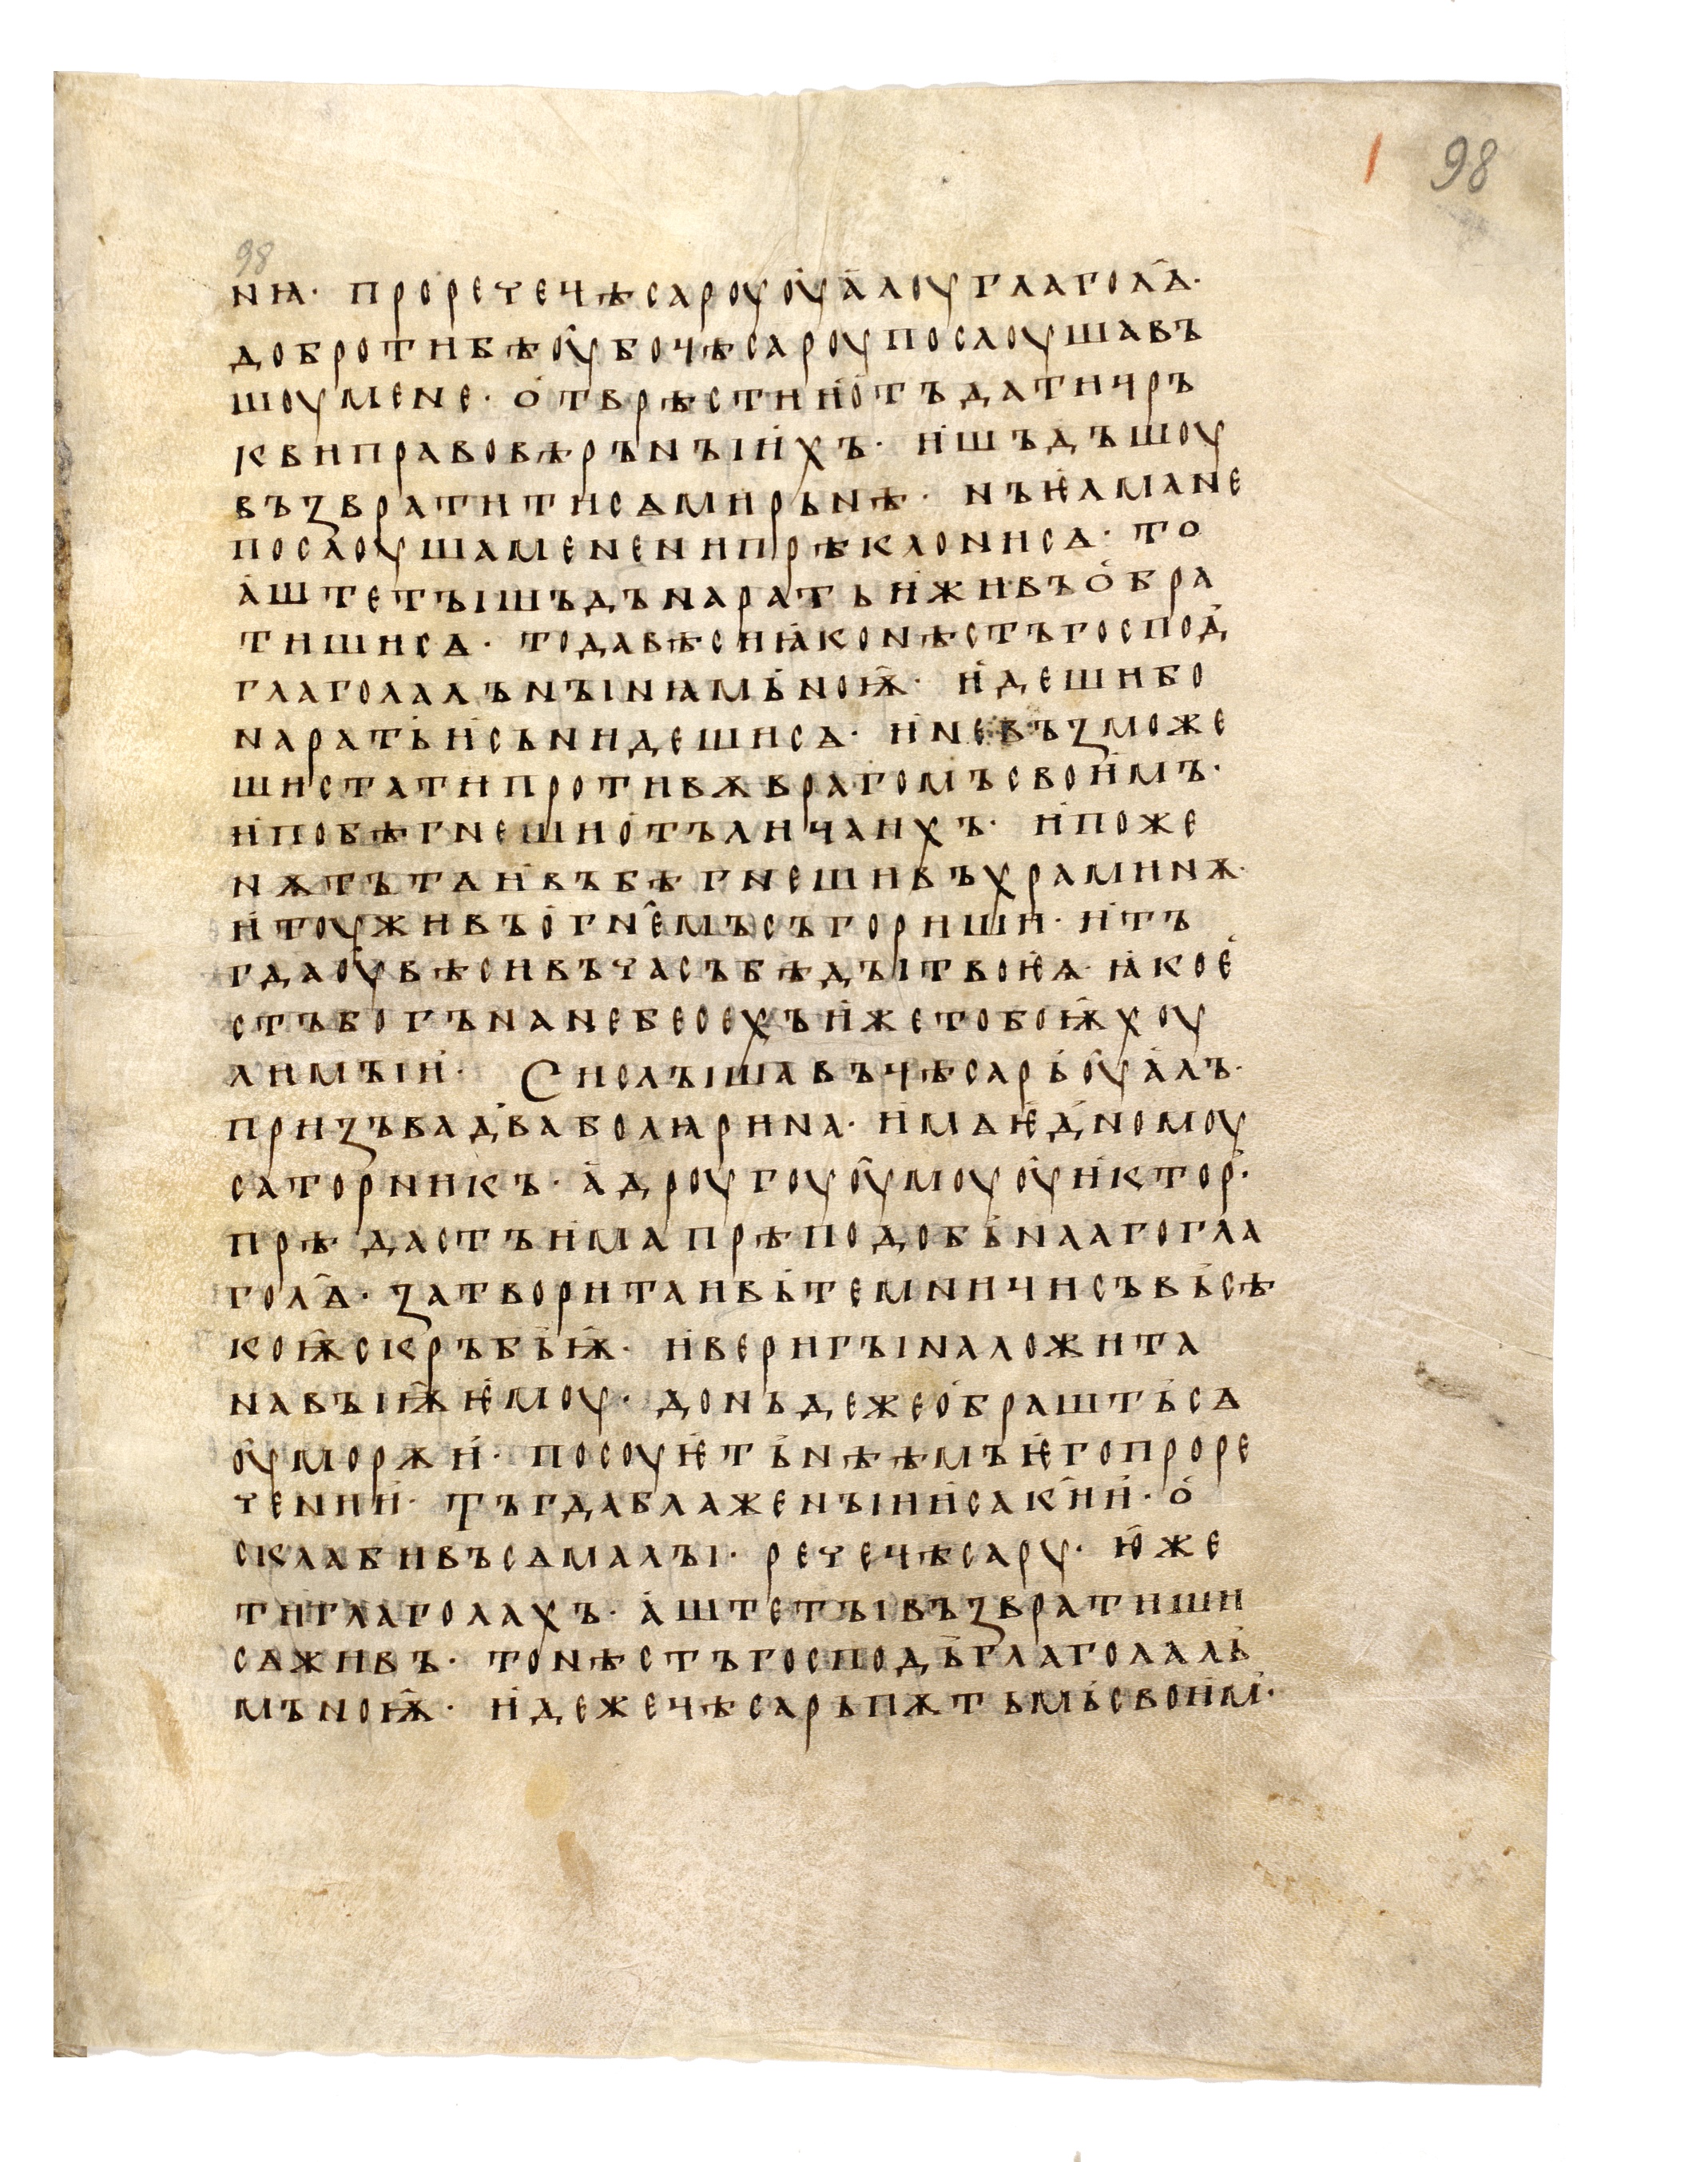 1 98
98
нꙗ· прорече цѣсароу оу҆а҆лоу глагол҄ѧ·
добротибѣоу҆боцѣсароупослоушавъ
шоумене· о҆тврѣстии҆о҆тъдатицръ
квиправовѣрънꙑи҆хъ· и҆шъдъшоу
възвратитисѧмирьнѣ· нъѥ҆лмане
послоушамененипрѣклонисѧ· то
а҆штетꙑшъдънаратьи҆живъо҆бра
тишисѧ· тодавѣсиꙗ҆конѣстъгоспод҆
глаголалънꙑнꙗмь҆ноѭ҆· и҆дешибо
нарать҆и҆сънидешисѧ· и҆невъзможе
шистатипротивѫврагомъсвои҆мъ·
и҆побѣгнешио҆тълицаихъ· и҆поже
нѫтътѧи҆въбѣгнешивъхраминѫ·
и҆тоуживъо҆гн҄емьсъгориши· и҆тъ
гдаоу҆вѣсивъчасъбѣдꙑтвоѥ҆ѩ· ꙗ҆кое҆
стъбогънанебесехъи҆жетобоѭ҆хоу
лимꙑи҆· Сислꙑшавъцѣсарь҆оу҆а҆лъ·
призъвад҆ваболꙗрина· и҆мѧѥ҆д҆номоу
саторникъ· а҆дроугоуоу҆моуоу҆и҆ктор҆·
прѣдастъи҆мапрѣподобь҆наагогла
гол҄ѧ· затворитаивь҆темницисъвь҆сѣ
коѭ҆скръбь҆ѭ҆· и҆веригꙑналожита
навꙑѭ҆ѥ҆моу· доньдежео҆браштѫ҆сѧ
оу҆морѫи҆· посоуѥ҆ть҆нѣѣмьѥ҆гопроре
чении҆· Тъгдаблаженꙑи҆и҆саки҆и҆· о҆
склабивъсѧмалꙑ· речецѣсару· ю҆же
тиглаголахъ· а҆штетꙑвъзвратиши
сѧживъ· тонѣстъгосподь҆глаголаль҆
мъноѭ҆· и҆дежецѣсарьпѫтьмь҆свои҆м҆·